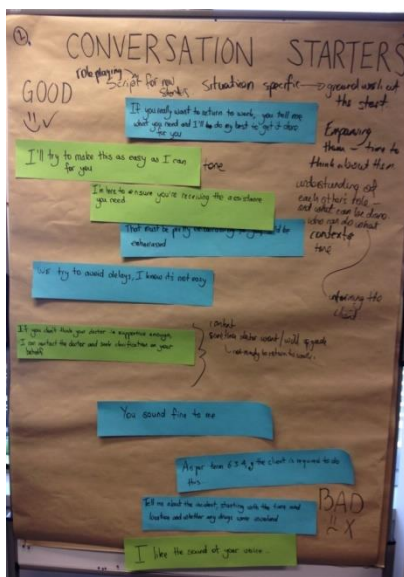 2.
CONVERSATION STARTERS
role playing
script for new
starters
Situation specific → ground work out
the start.
GOOD
If you really want to return to work, you tell me
what you need and I'll do my best to get it done
for you
Empowering
them – time to
think about them
I'll try to make this as easy as I can
for you
tone
I'm here to ensure you're receiving the assistance
you need
understanding of
each others role
and what can be done
who can do what
That must be pretty
context
tone
We try to avoid delays, I know it's not easy
informing the
client
If you don't think your doctor is supportive enough,
I can contact the doctor and seek clarification on your
behalf
context
sometimes doctor
not ready to return to work.
You sound fine to me
As per term 6.3.4, the client is required to do
this.
Tell me about the incident, starting with the time and
location and whether any drugs were involved
BAD
X
I like the sound of your voice.